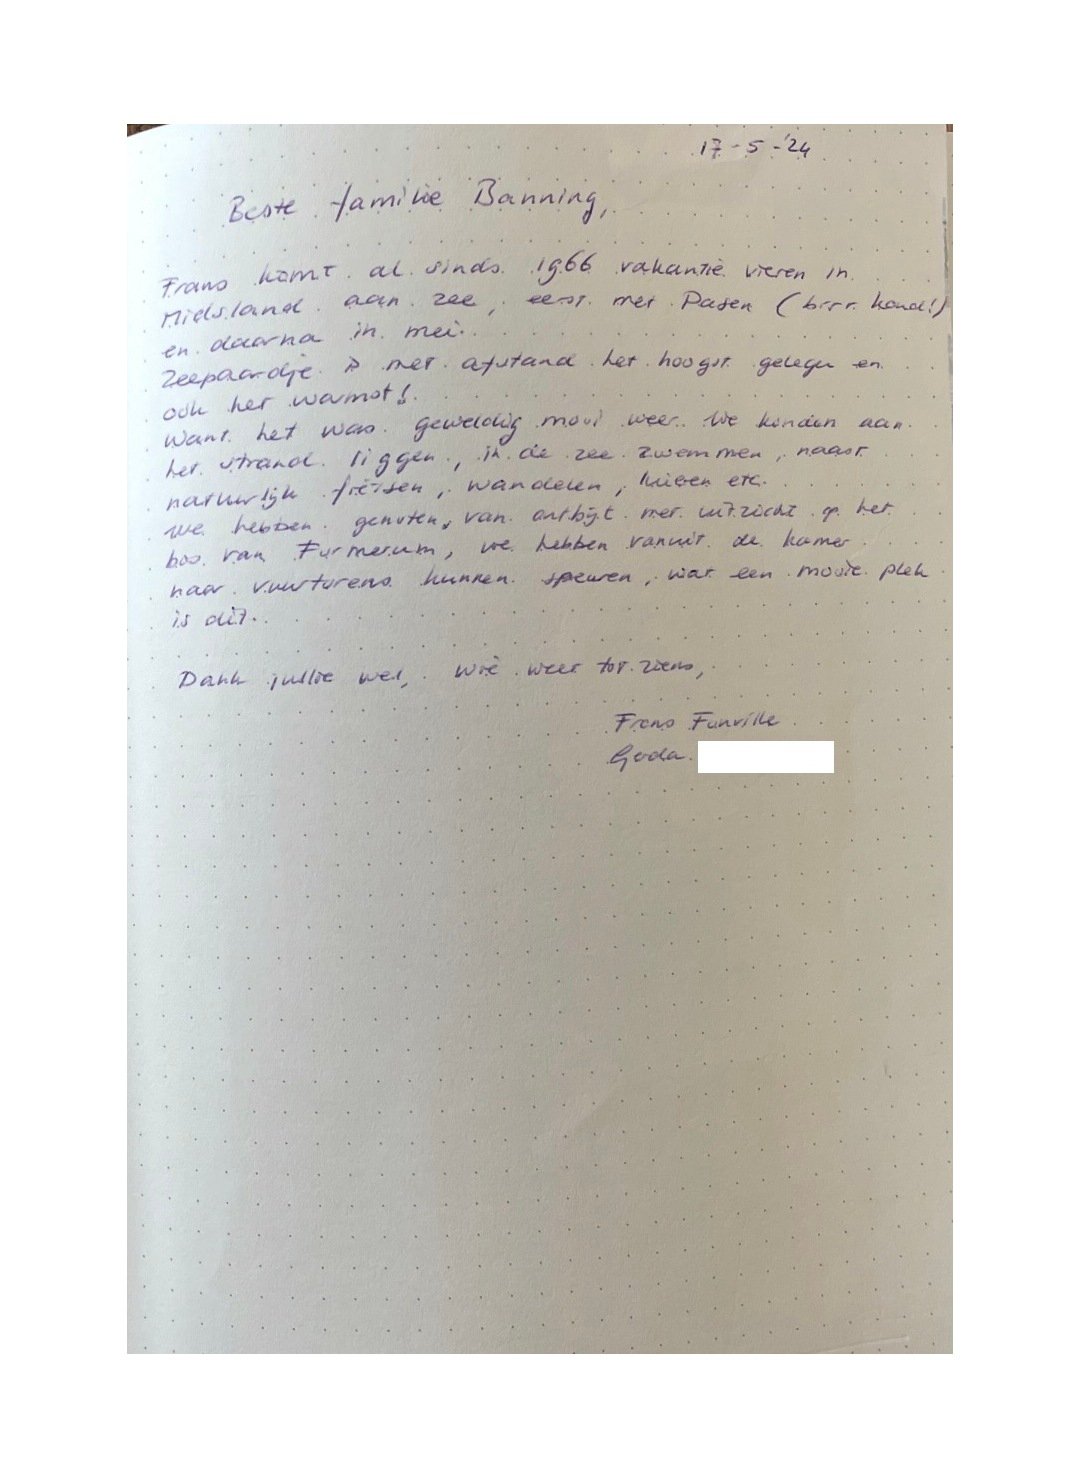 17-5-'24
Beste familie Banning,
Frans komt al sinds 1966 vakantie vieren in
Midsland aan zee, eerst met Pasen (brrr koud!)
en daarna in mei.
Zeepaardje is met afstand het hoogst gelegen en
ook het warmst!
Want het was geweldig mooi weer. We konden aan
het strand liggen, in de zee zwemmen, naast
natuurlijk fietsen, wandelen, etc.
We hebben genoten van ontbijt met uitzicht op het
bos van Furmerum, we hebben vanuit de kamer
naar vuurtorens kunnen speuren, wat een mooie plek
is dit.
Dank jullie wel, wie weet tot ziens,
Frans Funville